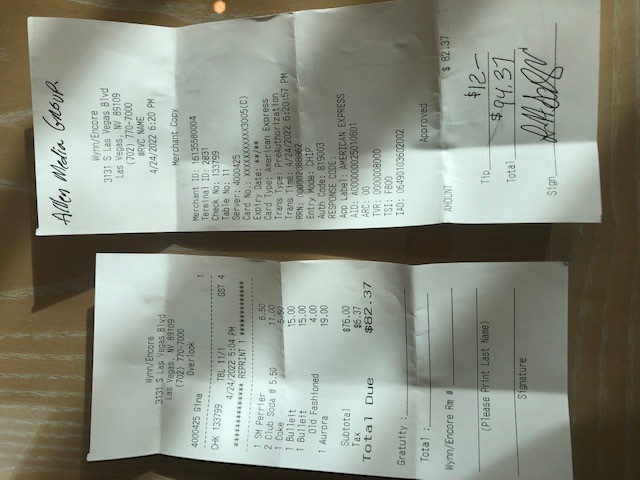 Wynn/Encore
3131 S Las Vegas Blvd
Las Vegas, NV 89109
(702) 770-7000
Overlook
4000425 Gina 1
CHK 133799 TBL 11/1 GST 4
4/24/2022 5:04 PM
************** REPRINT 1 *************
1 SM Perrier 6.50
2 Club Soda @ 5.50 11.00
1 Coke 5.50
1 Bulleit 15.00
1 Bulleit 15.00
Old Fashioned 4.00
1 Aurora 19.00
Subtotal $76.00
Tax $6.37
Total Due $82.37
Gratuity :
Total :
Wynn/Encore Rm #
(Please Print Last Name)
Signature
Allen Media Group.
Wynn/Encore
3131 S Las Vegas Blvd
Las Vegas, NV 89109
(702) 770-7000
#RVC NAME
4/24/2022 6:20 PM
Merchant Copy
Merchant ID: 16135580004
Terminal ID: 2831
Check No: 133799
Table No: 11
Server: 4000425
Card No.: XXXXXXXXXXX3005(C)
Expiry Date: **/**
Card Type: American Express
Trans Type: PreAuthorization
Trans Time: 4/24/2022 6:20:57PM
RRN: 000002088862
Entry Mode: CHIP
Auth Code: 819003
RESPONSE CODE:
App Label: AMERICAN EXPRESS
AID: A000000025010801
ARC: 00
TVR: 0000008000
TSI: F800
IAD: 06490103602002
Approved
AMOUNT $ 82.37
Tip $12-
Total $94.37
Sign